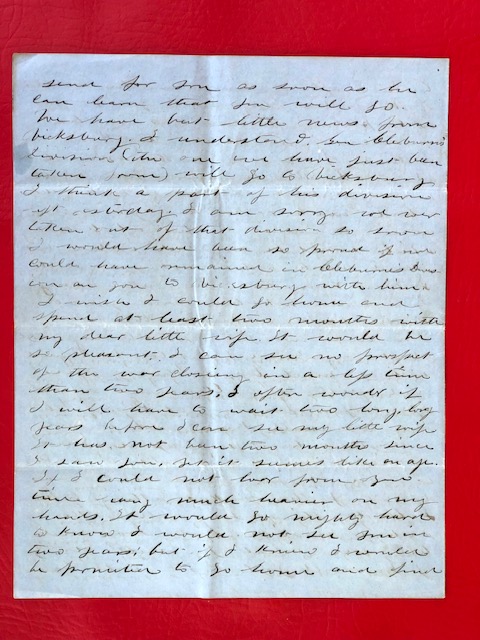 send for you as soon as he
can learn that you will go.
We have but little news from
Vicksburg. I understand Gen Cleburn's
division (the one we have just been
taken from) will go to Vicksburg
I think a part of his division
left yesterday. I am sorry we wer
taken out of that division so soon
I would have been so proud if we
could have remained in Cleburnes Divis
ion an gon to Vicksburg with him.
I wish I could go home and
spend at least two months with
my dear little wife It would be
so pleasant. I can see no prospect
of the war closing in a less time
than two years. I often wonder if
I will have to wait two long, long
years before I can see my little wife
It has not been two months since
I saw you, yet it seems like an age.
If I could not hear from you
time would hang much heavier on my
hands. It would go mighty hard
to know I would not see you in
two years; but if I knew I would
be permitted to go home and find